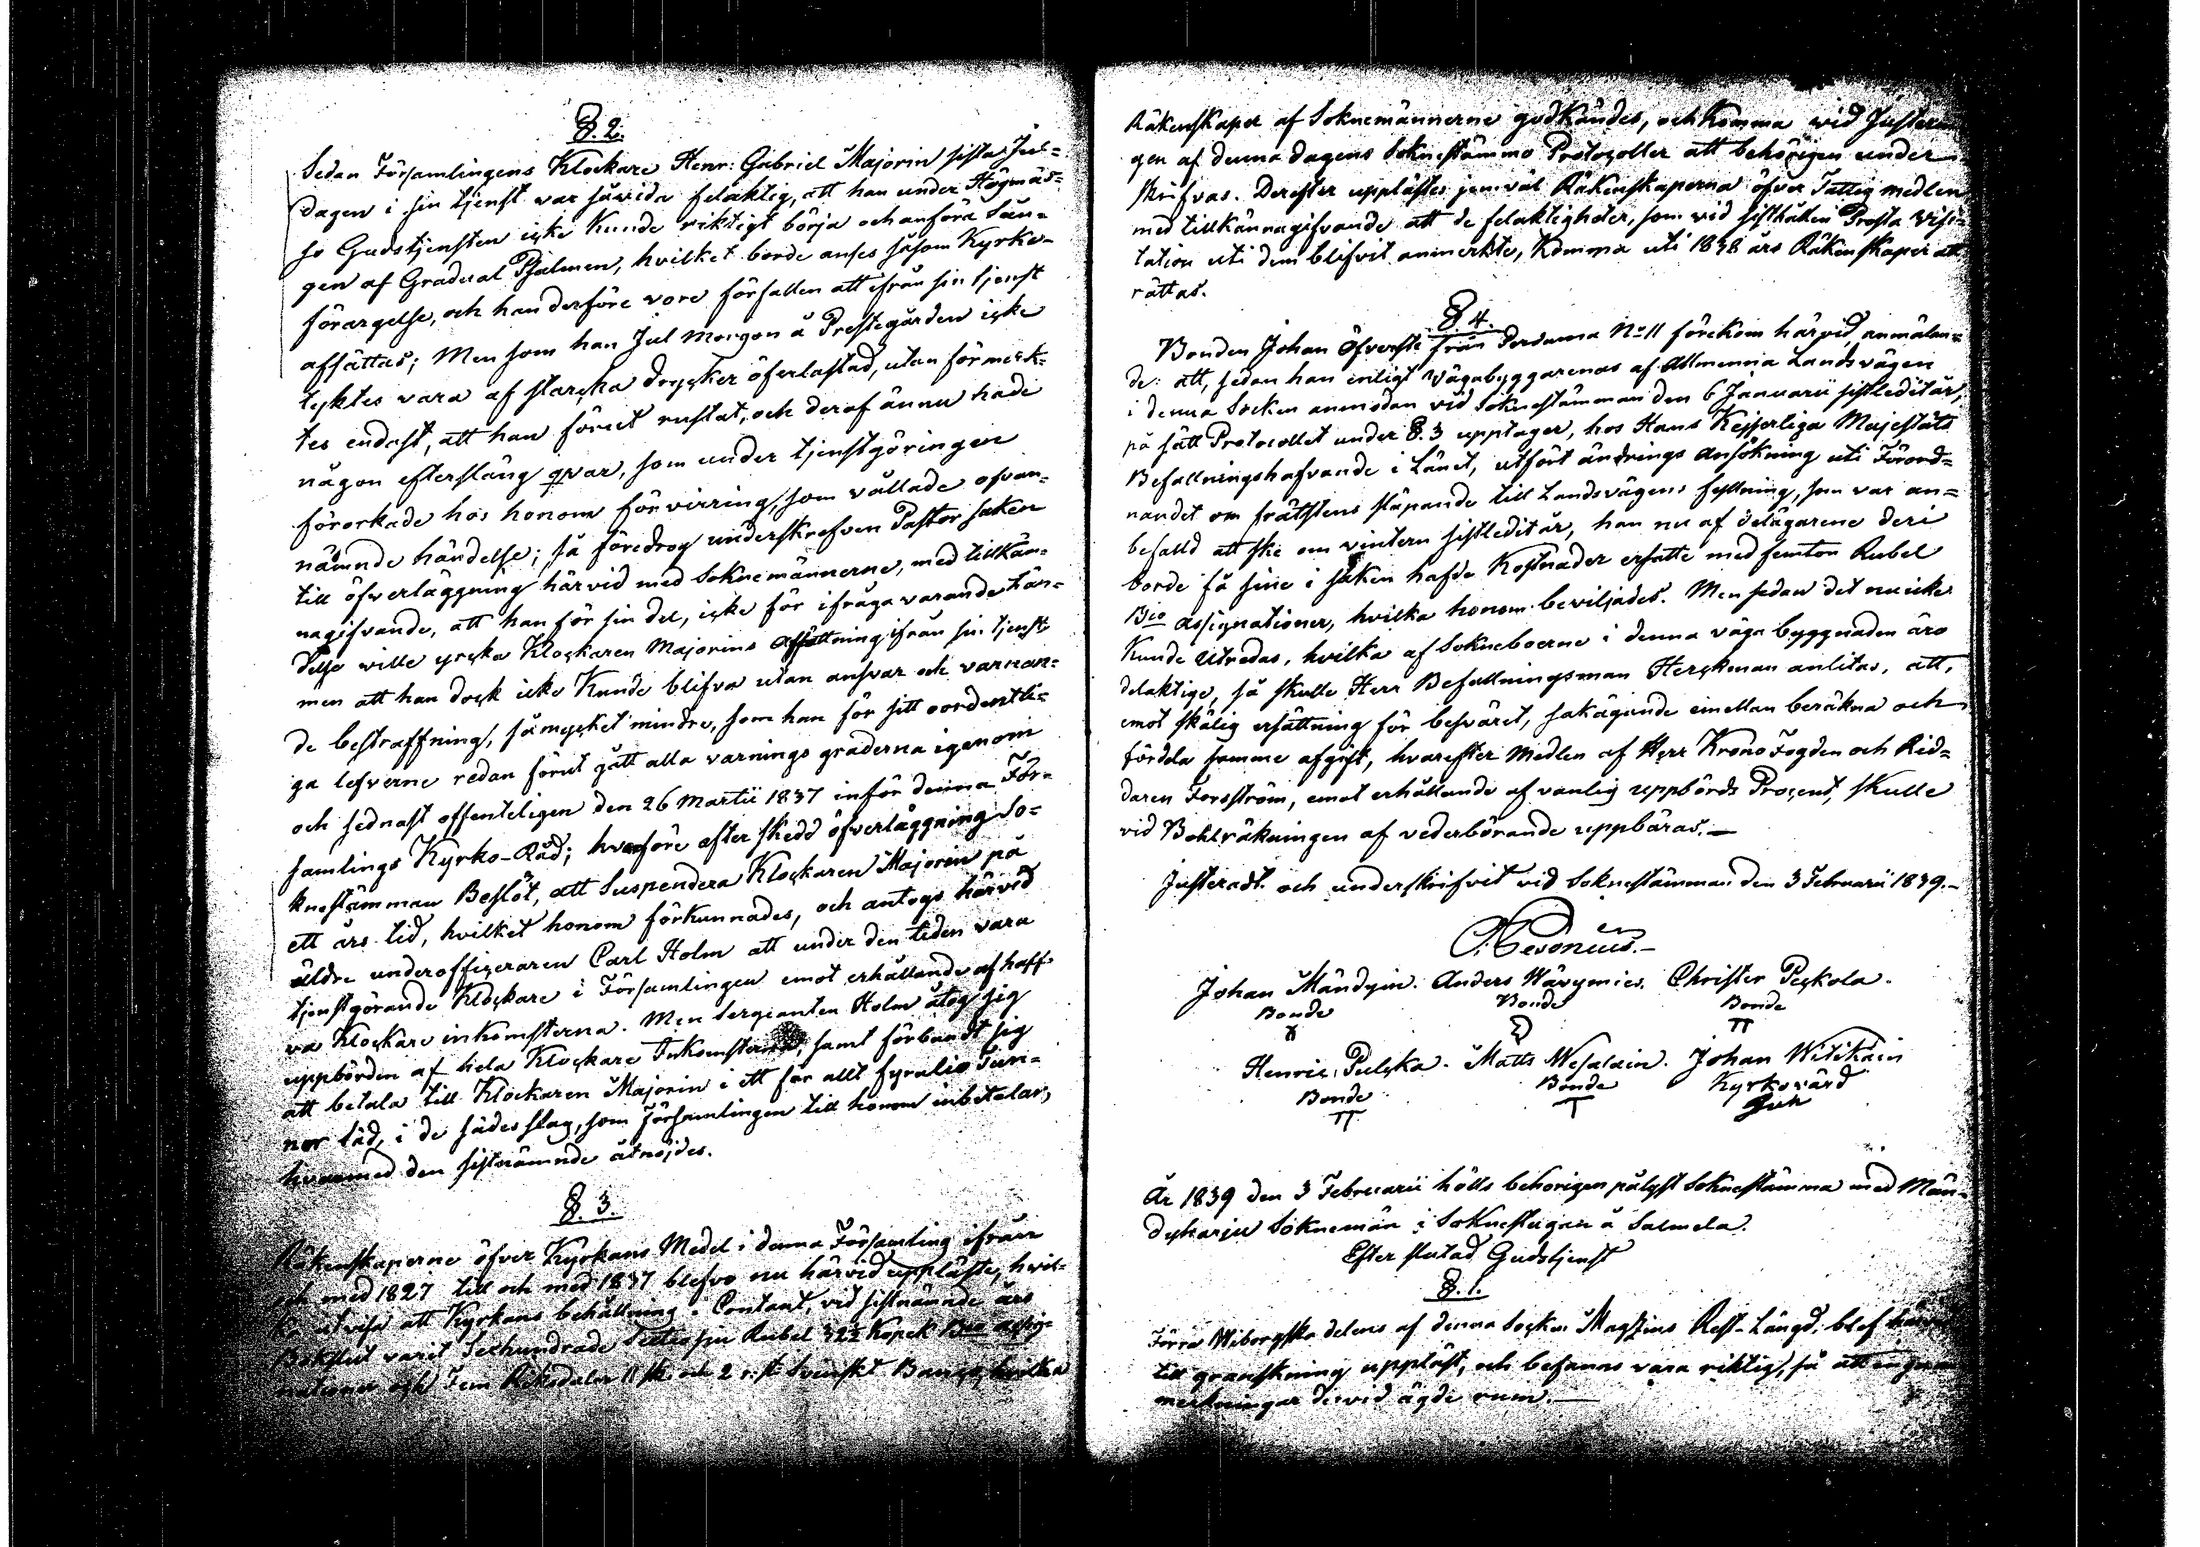 §. 2.
Sedan Församlingens Klockare Henr: Gabriel Majorin sista Jul=
dagen i sin tjenst var såvida felaktig, att han under Högmäs=
so Gudstjensten icke Kunde riktigt börja och anföra Sån=
gen af Gradual Psalmen, hvilket borde anses såsom Kyrko-
förargelse, och han derföre vore förfallen att ifrån sin tjenst
afsättas; Men som han Jul morgon å Prestegården icke
tycktes vara af starcka drycker öfverlastad, utan förmerk-
tes endast, att han förut rustat, och deraf ännu hade
någon efterslang qvar, som under tjenstgöringen
förorkade hos honom förvirring, som vållade ofvan-
nämnde händelse; så föredrog underskrefven Pastor saken
till öfverläggning härvid med Soknemännerne, med tillkän-
nagifvande, att han för sin del, icke för ifråga varande hän-
delse wille yrcka Klockaren Majorins afsättning ifrån sin tjenst
men att han dock icke Kunde blifva utan ansvar och varnan-
de bestraffning, så mycket mindre, som han för sitt oordentli-
ga lefverne redan förut gått alla varnings graderna igenom
och sednast offenteligen den 26 Martii 1837 inför denna För-
samlings Kyrko-Råd; hvarföre efter skedd öfverläggning So-
knestämman Beslöt, att Suspendera Klockaren Majorin på
ett års tid, hvilket honom förkunnades, och antogs härvid
äldre underofficeraren Carl Holm att under den tiden vara
tjenstgörande Klockare i Församlingen emot erhållande af half-
va Klockare inkomsterna. Men Sergianten Holm åtog sig
uppbörden af hela Klockare Inkomsterna, samt förbandt sig
att betala till Klockaren Majorin i ett för allt fyratio Tun-
nor säd, i de sädesslag, som Församlingen till honom inbetalar,
hvarmed den sistnämnde åtnöjdes.
§. 3.
Räkenskaperne öfver Kyrkans Medel i denna Församling ifrån
och med 1827 till och med 1837 blefvo nu härvid uppläste, hvil-
ka utvisa att Kyrkans behållning i Contant, vid sistnämnde års
Bokslut varit Sexhundrade Rubel 32½ Kopek Bco assig-
nationer och Fem Riksdaler 11 sk. och 2 r.st. Svenskt Banco, hvilka
Räkenskaper af Soknemännerne godkändes, och Komma vid Justerin
gen af denna dagens Soknestämmo Protocoller att behörigen under
skrifvas. Derefter upplästes jemväl Räkenskaperna öfver Fattig medlen
med tillkännagifvande att de felaktigheter, som vid sisthållen Prosta Visi-
tation uti dem blifvit anmerkte, Komma uti 1838 års Räkenskaper att
rättas.
§. 4.
Bonden Johan Öfverste från No 11 förekom härvid, anmälan-
de: att, sedan han enligt vägabyggarenas af Allmenna Landsvägen
i denna Socken anmodan vid Soknestämman den 6 Januarii sistledit år,
på sätt Protocollet under §. 3 upptager, hos Hans Kejserliga Majestäts
Befallningshafvande i Länet, utfört ändrings ansökning uti Förord-
nandet om släpande till Landsvägens fyllning, som var an=
befalld att ske om vintern sistledit år, han nu af delägarene deri
borde få sine i saken hafde Kostnader ersatte med femton Rubel
Bco Assignationer, hvilka honom beviljades. Men sedan det nu icke
Kunde utredas, hvilka af Sokneboerne i denna väga byggnaden äro
delaktige, så skulle Herr Befallningsman Herckman anlitas, att,
emot skälig ersättning för besväret, sakägande emellan beräkna och
fördela samme afgift, hvarefter Medlen af Herr Krono Fogden och Rid=
daren Forsström, emot erhållande af vanlig uppbörds Procent, skulle
vid Bohlräkningen af vederbörande uppbäras.—
Justeradt och underskrifvit vid Soknestämman den 3 Februarii 1839.—
Johan Mändyin. Anders Häyrynies. Christer Peckola.
Bonde Bonde Bonde
Henric Pulcka. Matts Wesalain. Johan Witikain
Bonde Bonde Kyrkovärd
År 1839 den 3 Februarii hölls behörigen pålyst Soknestämma med Män-
dyharju Soknemän i Soknestugan å Salmela.
Efter slutad Gudstjenst
§. 1.
Förra Wiborgska delens af denna Socken Magzins Rest-Längd, blef
till granskning uppläst, och befanns vara riktig, så att
merkningar dervid ägde rum.—